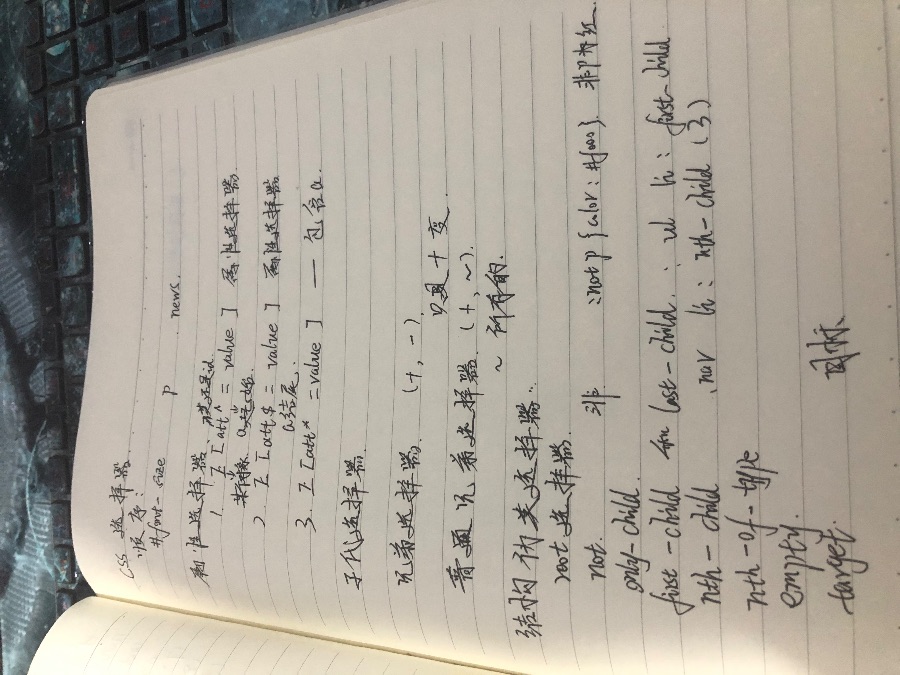 CSS 选择器
顺序:
#font-size p .news
属性选择器
1. E [att^ = value] 属性选择器
2. E [att$ = value] 属性选择器
a结尾
3. E [att* = value] — 包含a.
子代选择器
兄弟选择器 (+, ~)
只是+变
普通兄弟选择器 (+, ~)
~ 所有的.
结构伪类选择器.
root 选择器
not. 非 :not p {color: #f000} 非P标红
only-child.
first-child 和 last-child. : ul li: first-child
nth-child .nav li: nth-child (3)
nth-of-type
empty.
target. 目标